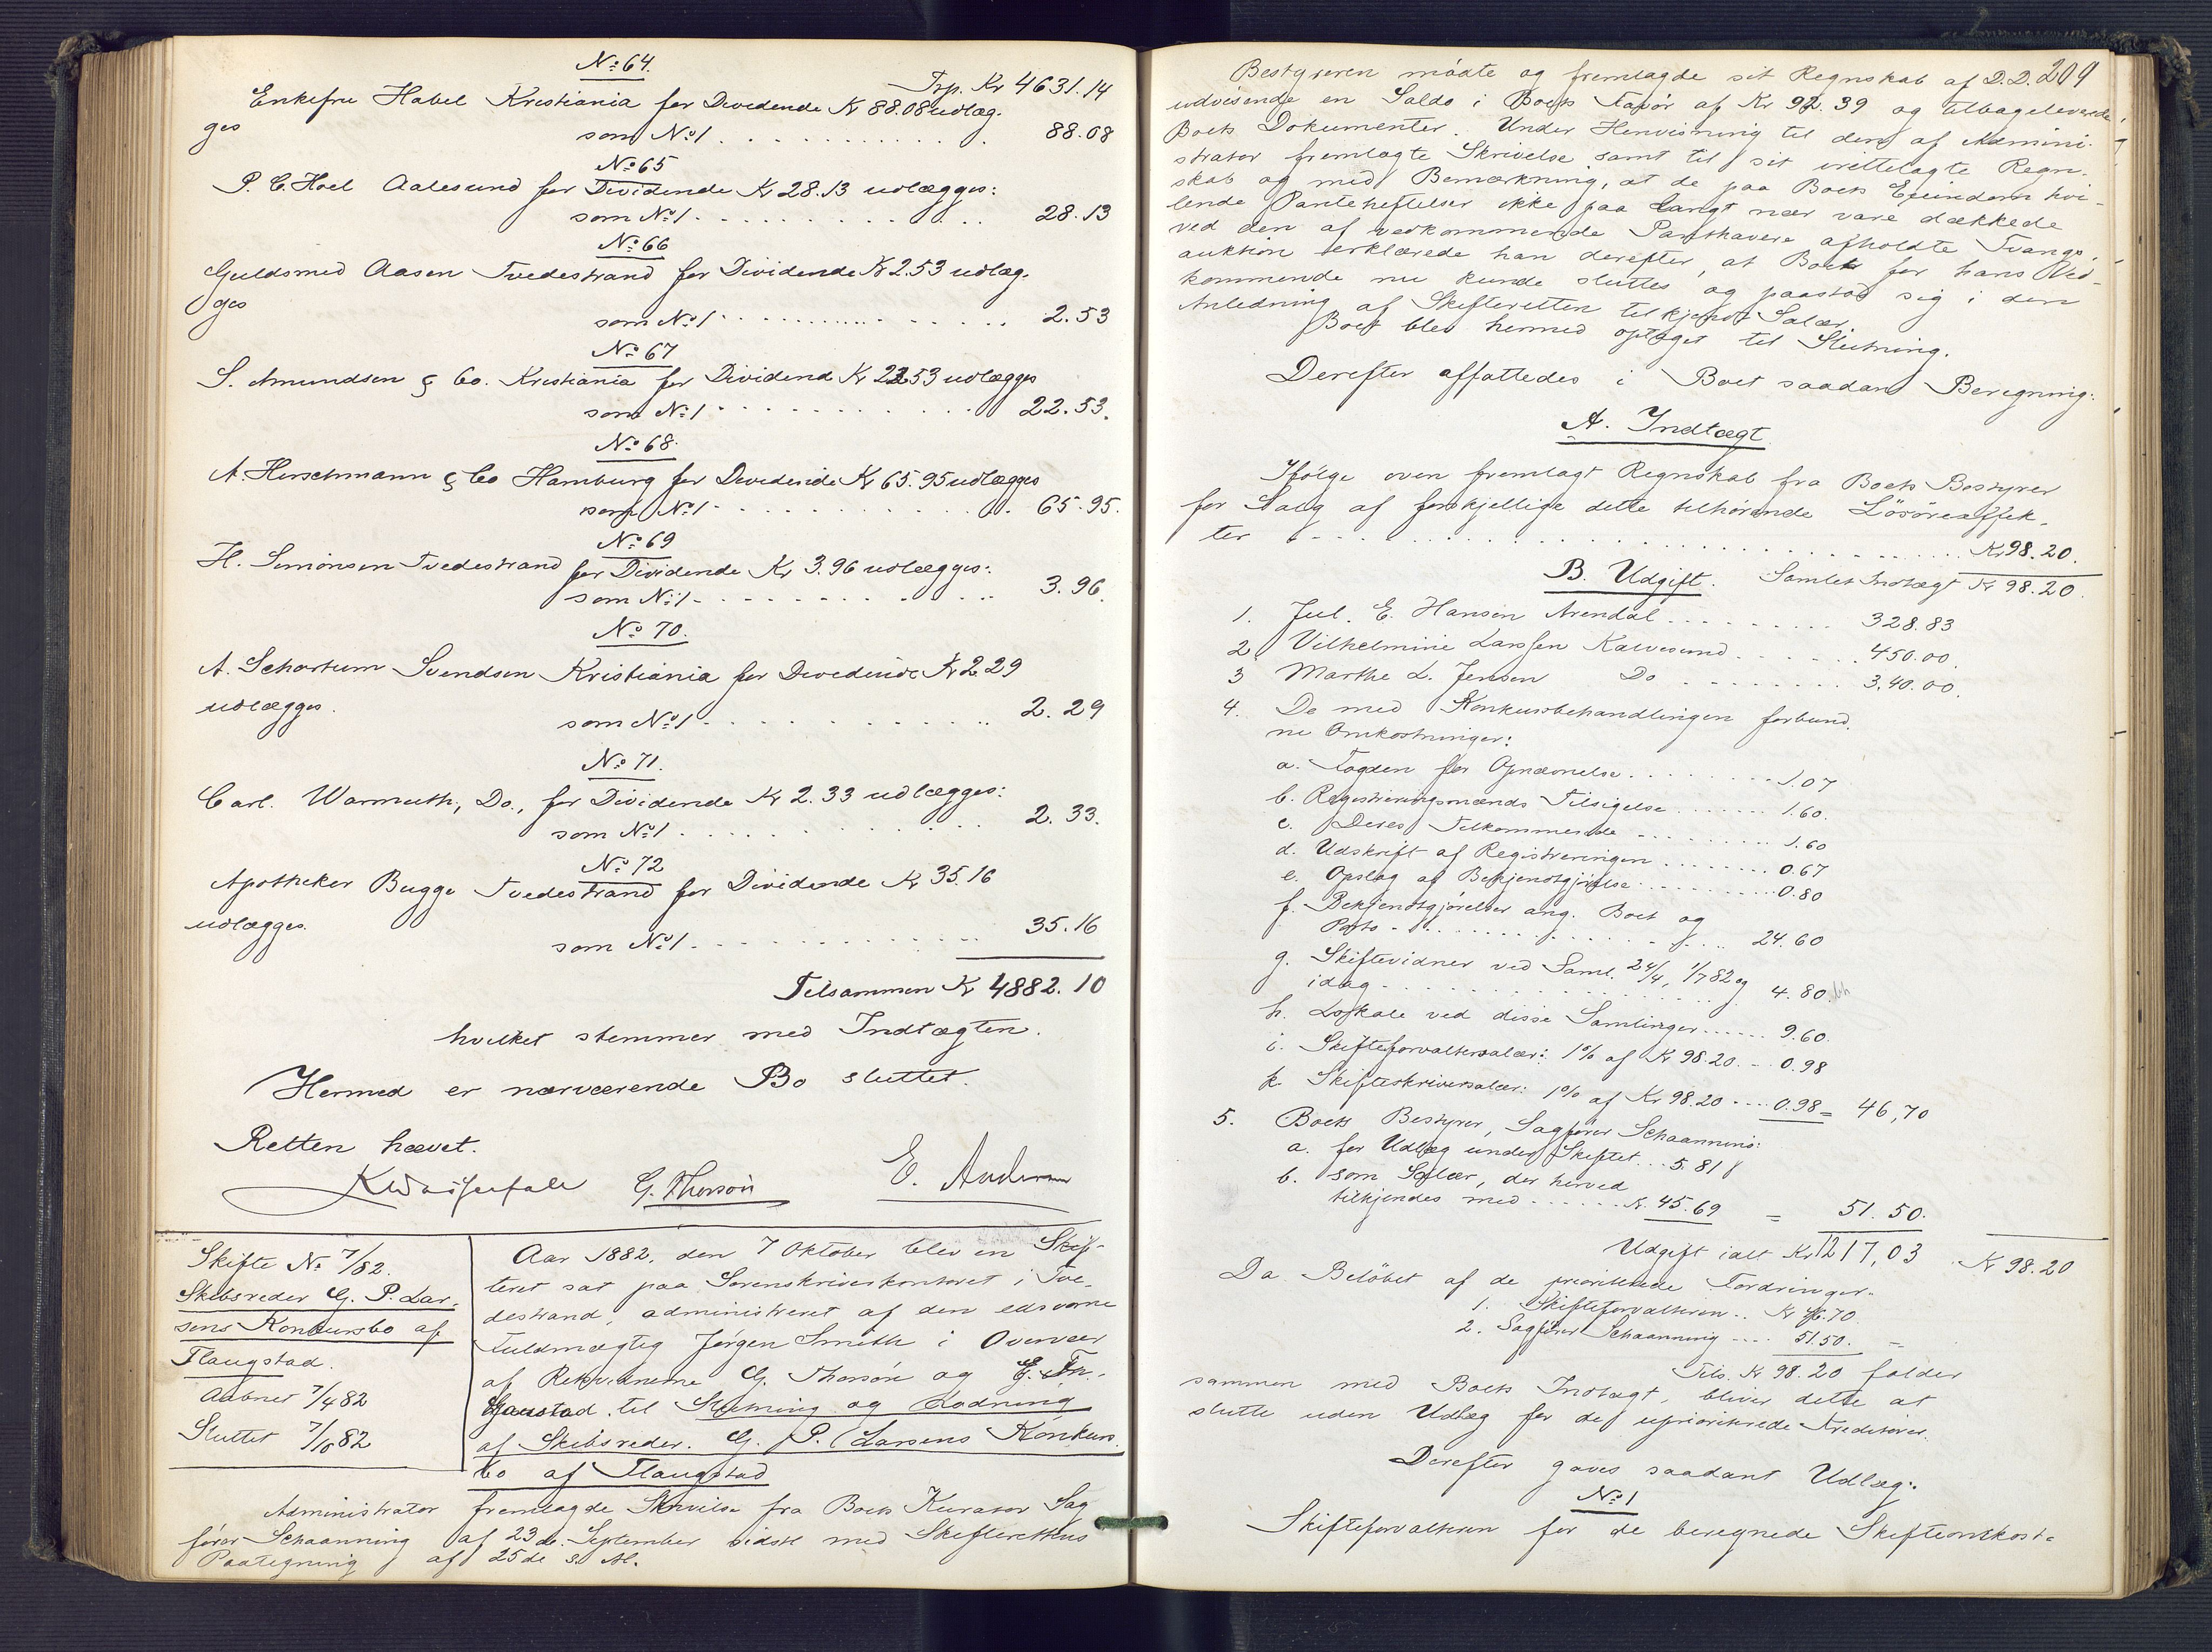 No 64.
Trp. Kr 4631.14
Enkefru Habel Kristiania for Dividende Kr 88.08 udlæg-
ges
som No 1 . . . . . . . . . . 88.08
No 65
P. C. Hoel Aalesund for Dividende Kr 28.13 udlægges:
som No 1 . . . . . . . . . . 28.13
No 66
Guldsmed Aasen Tvedestrand for Dividende Kr 2.53 udlæg-
ges
som No 1 . . . . . . . . . . 2.53
No 67
S. Amundsen & Co. Kristiania for Dividend Kr 22.53 udlægges
som No 1 . . . . . . . . . . 22.53.
No 68.
A. Hirschmann & Co Hamburg for Dividende Kr 65.95 udlægges
som No 1 . . . . . . . . . . 65.95.
No 69
H. Simonsen Tvedestrand for Dividende Kr 3.96 udlægges:
som No 1 . . . . . . . . . . 3.96.
No 70.
A. Schartum Svendsen Kristiania for Dividende Kr 2.29
udlægges.
som No 1 . . . . . . . . . . 2.29
No 71.
Carl. Warmuth, Do., for Dividende Kr 2.33 udlægges:
som No 1 . . . . . . . . . . 2.33.
No 72
Apotheker Bugge Tvedestrand for Dividende Kr 35.16
udlægges.
som No 1 . . . . . . . . . . 35.16
Tilsammen Kr 4882.10
hvilket stemmer med Indtægten.
Hermed er nærværende Bo sluttet.
Retten hævet.
G. Thorsön E. Andersen
Skifte No 7/82.
Skibsreder G. P. Lar-
sens Konkursbo af
Flaugstad.
Aabnet 7/4 82
Sluttet 7/10 82
Aar 1882, den 7 Oktober blev en Skif-
teret sat paa Sorenskriverkontoret i Tve-
destrand, administreret af den edsvorne
Fuldmægtig Jørgen Smith i Overvær
af Retsvidnerne G. Thorsön og E. Tn.
Gaustad til Slutning og Lodning
af Skibsreder G. P. Larsens Konkurs-
bo af Flaugstad
Administrator fremlagde Skrivelse fra Boets Kurator Sag
fører Schaanning af 23de September sidstl med Skifterettens
Paategning af 25de s. M.
209
Bestyreren mødte og fremlagde sit Regnskab af D.D.
udvisende en Saldo i Boets Favør af Kr 92.39 og tilbageleverede
Boets Dokumenter. Under Henvisning til den af Admini-
strator fremlagte Skrivelse samt til sit irettelagte Regn-
skab og med Bemærkning, at de paa Boets Eiendom hvi-
lende Panteheftelser ikke paa langt nær vare dækkede
ved den af vedkommende Panthavere afholdte Tvangs-
auktion erklærede han derefter, at Boet for hans Ved-
kommende nu kunde sluttes og paastod sig i den
Anledning af Skifteretten tilkjendt Salær.
Boet blev hermed optaget til Slutning.
Derefter affattedes i Boet saadan Beregning:
A. Indtægt
Ifølge oven fremlagt Regnskab fra Boets Bestyrer
for Salg af forskjellige dette tilhørende Løsøreeffek-
ter . . . . . . . . . . Kr 98.20.
B. Udgift. Samlet Indtægt Kr 98.20.
1. Jul. E. Hansen Arendal . . . . . . 328.83
2 Vilhelmine Larssen Kalvesund . . . . . . 450.00.
3 Marthe L. Jensen Do . . . . . . 3,40.00.
4. De med Konkursbehandlingen forbund-
ne Omkostninger:
a. Fogden for Opnævnelse . . . . . . 1.07
b. Registreringsmænds Tilsigelse . . . . . . 1.60.
c. Deres Tilkommende . . . . . . 1.60
d. Udskrift af Registreringen . . . . . . 0.67
e. Opslag af Bekjendtgjørelse . . . . . . 0.80
f. Bekjendtgjørelser ang. Boet og
Porto . . . . . . 24.60
g. Skiftevidner ved Saml. 24/4, 1/7 82 og
idag . . . . . . 4.80
h. Lokale ved disse Samlinger . . . . . . 9.60.
i. Skifteforvaltersalær: 1% af Kr 98.20 . . 0.98
k. Skifteskriversalær: 1% af Kr 98.20 . . . . 0.98 = 46,70
5. Boets Bestyrer, Sagfører Schaanning:
a. for Udlæg under Skiftet . . . 5.81
b. som Salær, der herved
tilkjendes med . . . . . . Kr. 45.69 = 51.50.
Udgift ialt Kr 1217,03 Kr 98.20
Da Beløbet af de prioriterede Fordringer.
1. Skifteforvalteren . . Kr 46.70
2. Sagfører Schaanning . . . . 51.50. =
Tils. Kr 98.20 falder
sammen med Boets Indtægt, bliver dette at
slutte uden Udlæg for de upriviterede Kreditorer.
Derefter gaves saadant Udlæg:
No 1
Skifteforvalteren for de beregnede Skifteomkost-